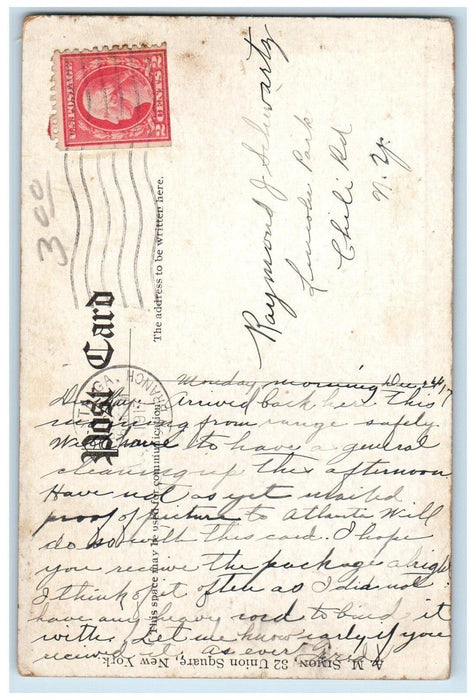 U.S. POSTAGE
2 CENTS 2
3 00
Post Card
The address to be written here.
This space may be used for communication.
A. M. SIMON, 32 Union Square, New York.
GA.
BRANCH
Raymond J Schwartz
Lincoln Park
Chili Rd
N.Y.
Monday morning Dec 24, 17
Arrived back here this
morning from range safely
Will have to have a general
cleaning up this afternoon.
Have not as yet mailed
proof of picture to Atlanta Will
do so with this card. I hope
you receive the package alright
I think of it often as I did not
have any heavy cord to bind it
with. Let me know early if you
received it, as ever